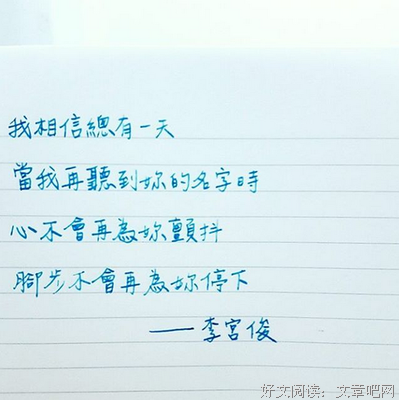 我相信總有一天
當我再聽到妳的名字時
心不會再為妳顫抖
腳步不會再為妳停下
——李宮俊
好文阅读：文章吧网